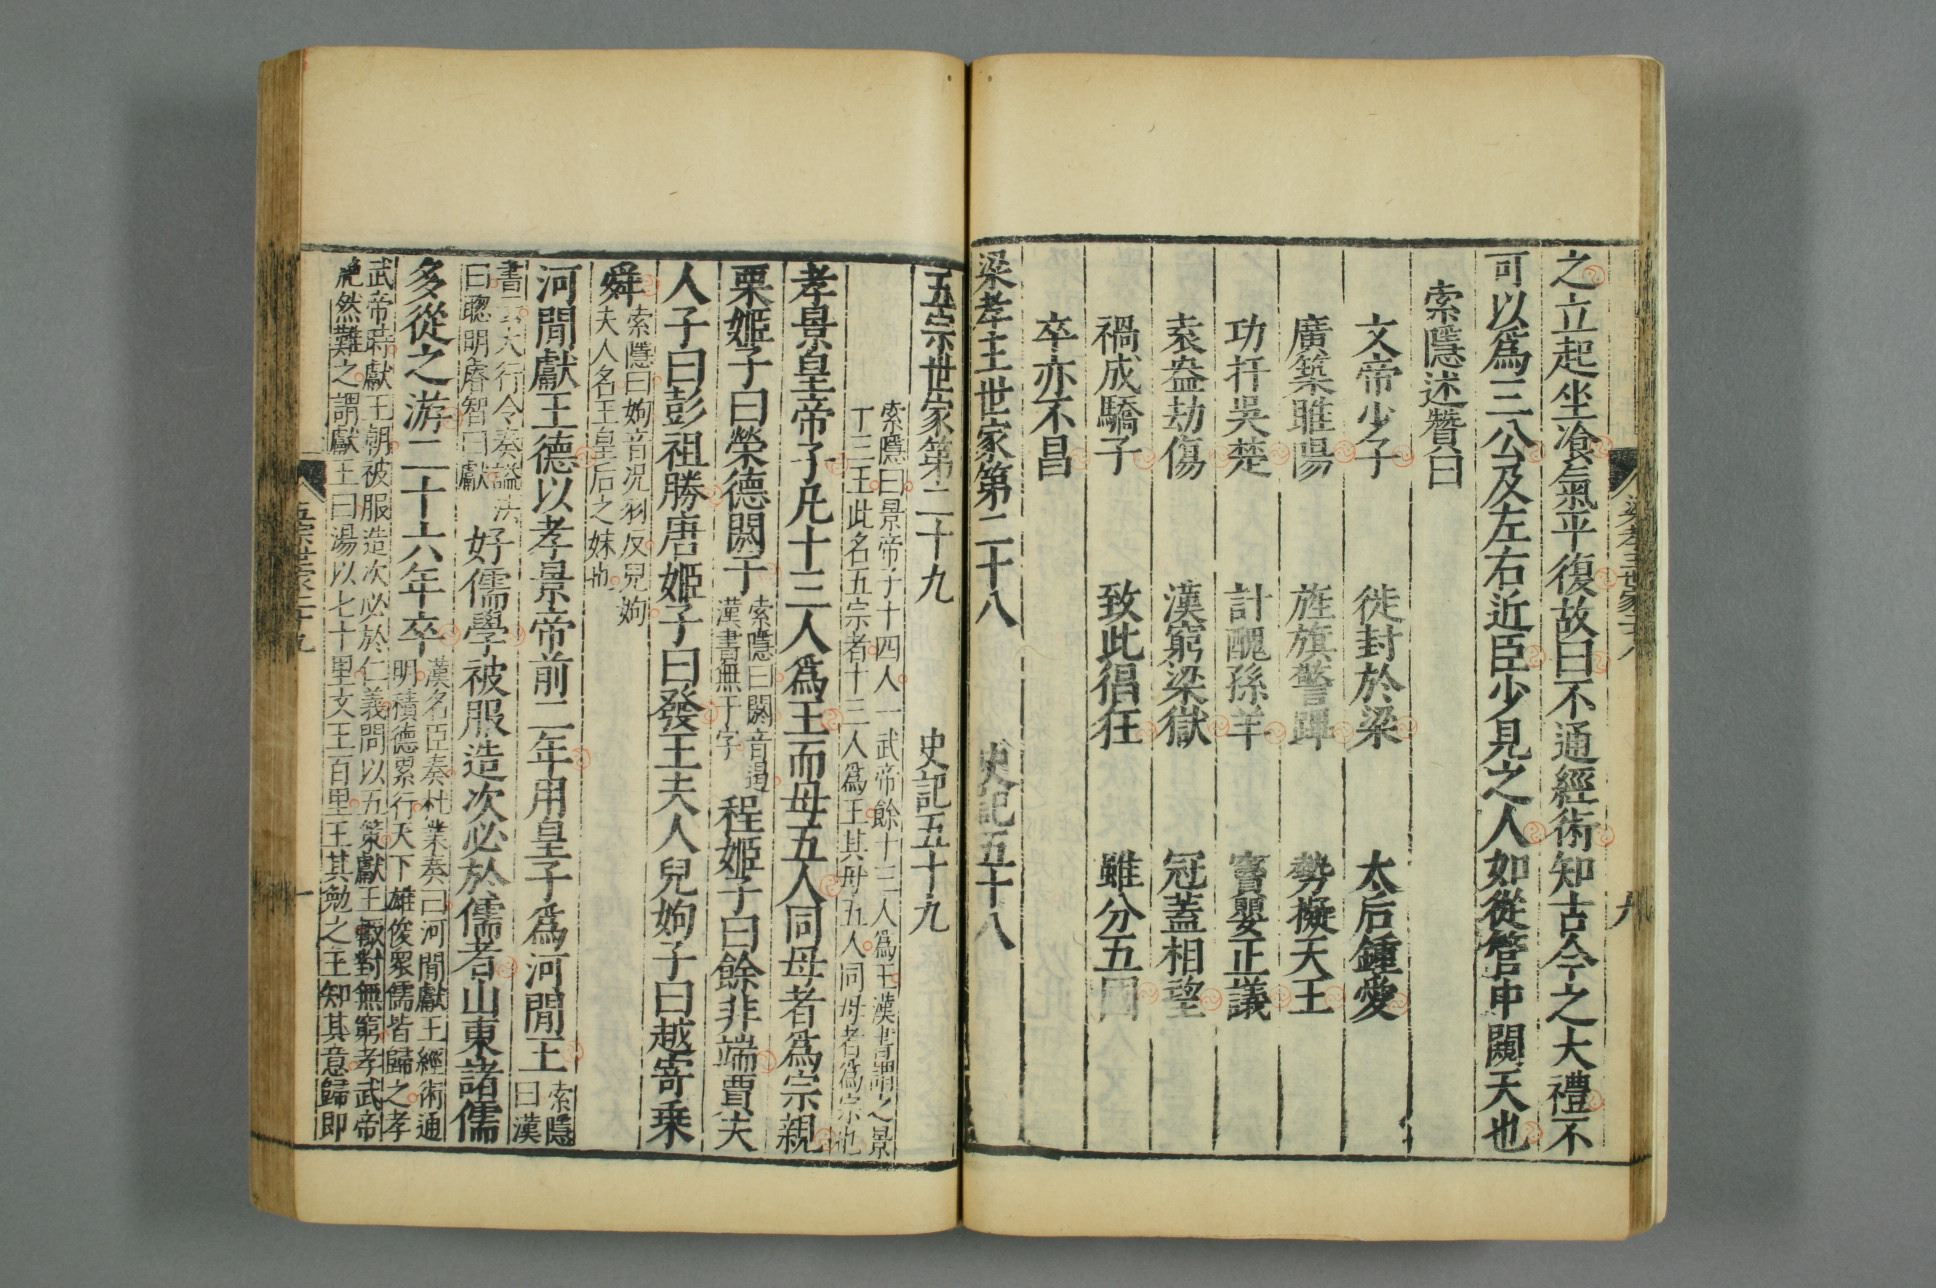 之立起坐飡氣平復故曰不通經術知古今之大禮不
可以爲三公及左右近臣少見之人如從管中闚天也
索隱述贊曰
文帝少子 徙封於梁 太后鍾愛
廣築睢陽 旌旗警蹕 勢擬天王
功扞吳楚 計醜孫羊 竇嬰正議
袁盎劫傷 漢窮梁獄 冠蓋相望
禍成驕子 致此猖狂 雖分五國
卒亦不昌
梁孝王世家第二十八 史記五十八
五宗世家第二十九 史記五十九
索隱曰景帝子十四人一武帝餘十三人爲王漢書謂之景
十三王此名五宗者十三人爲王其母五人同母者爲宗也
孝景皇帝子凡十三人爲王而母五人同母者爲宗親
栗姬子曰榮德閼于
索隱曰閼音遏
漢書無于字
程姬子曰餘非端賈夫
人子曰彭祖勝唐姬子曰發王夫人兒姁子曰越寄乗
舜
索隱曰姁音况羽反兒姁
夫人名王皇后之妹也
河閒獻王德以孝景帝前二年用皇子爲河閒王
索隱
曰漢
書云大行令奏謚法
曰聰明睿智曰獻
好儒學被服造次必於儒者山東諸儒
多從之游二十六年卒
漢名臣奏杜業奏曰河閒獻王經術通
明積德累行天下雄俊衆儒皆歸之孝
武帝時獻王朝被服造次必於仁義問以五策獻王輙對無窮孝武帝
艴然難之謂獻王曰湯以七十里文王百里王其勉之王知其意歸即
梁孝王世家二十八
九
五宗世家二十九
一